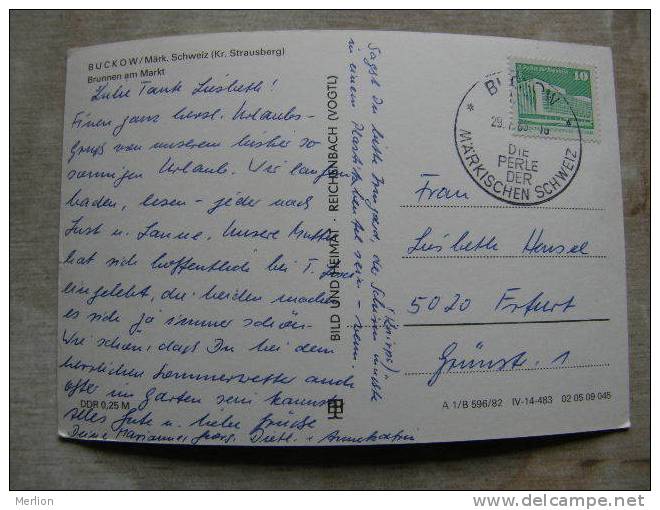 BUCKOW/Märk. Schweiz (Kr. Strausberg)
Brunnen am Markt
Liebe Tante Liesbeth!
Einen ganz herzl. Urlaubs-
gruß von unserem bisher so
sonnigen Urlaub. Wir laufen
baden, lesen - jeder nach
Lust u. Laune. Unsere Mutti
hat sich hoffentlich bei T.
eingelebt, die beiden machen
es sich ja immer schön.
Wie schön, daß Du bei dem
herrlichen Sommerwetter auch
öfter im Garten sein kannst.
Alles Gute u. liebe Grüße
Deine Marianne, Georg, Dietl. + Annekatrin
DDR 0,25 M
Sagst Du bitte Irmgard, die Schirm mußte
(Knirps)
in einem Plastikbeutel sein -
BILD UND HEIMAT · REICHENBACH (VOGTL)
BUCKOW
29.7.83-18
DIE
PERLE
DER
MÄRKISCHEN SCHWEIZ
10
Frau
Liesbeth Hensel
5020 Erfurt
Grünstr. 1
A 1/B 596/82 IV-14-483 02 05 09 045
Merlion
www.delcampe.net